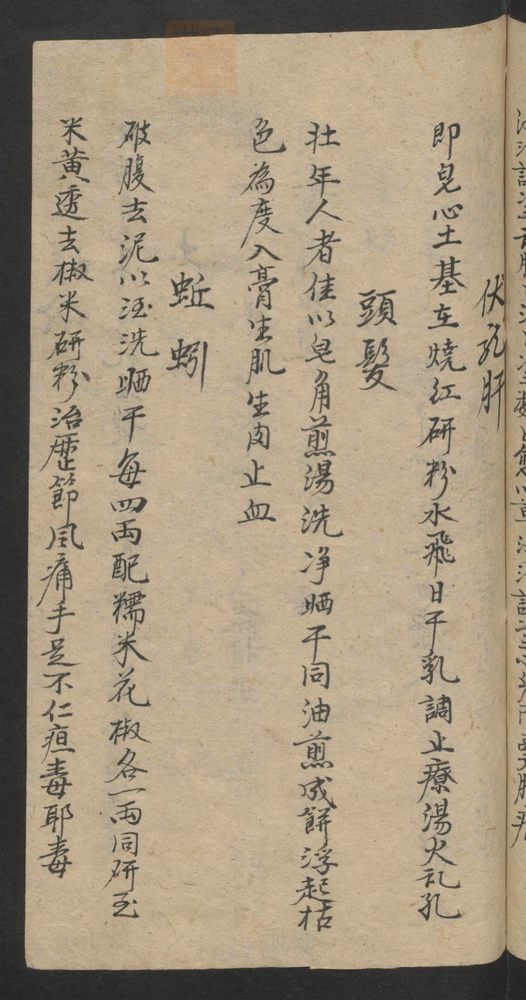 伏 肝
即 心土基在燒紅研粉水飛日干乳調止療湯火乱孔
頭髮
壮年人者佳以皂角煎湯洗净晒干同油煎成餅浮起枯
色為度入膏生肌生肉止血
蚯蚓
破腹去泥以酒洗晒干每四兩配糯米花椒各一兩同研至
米黄透去椒米研粉治歴節風痛手足不仁疸毒耶毒